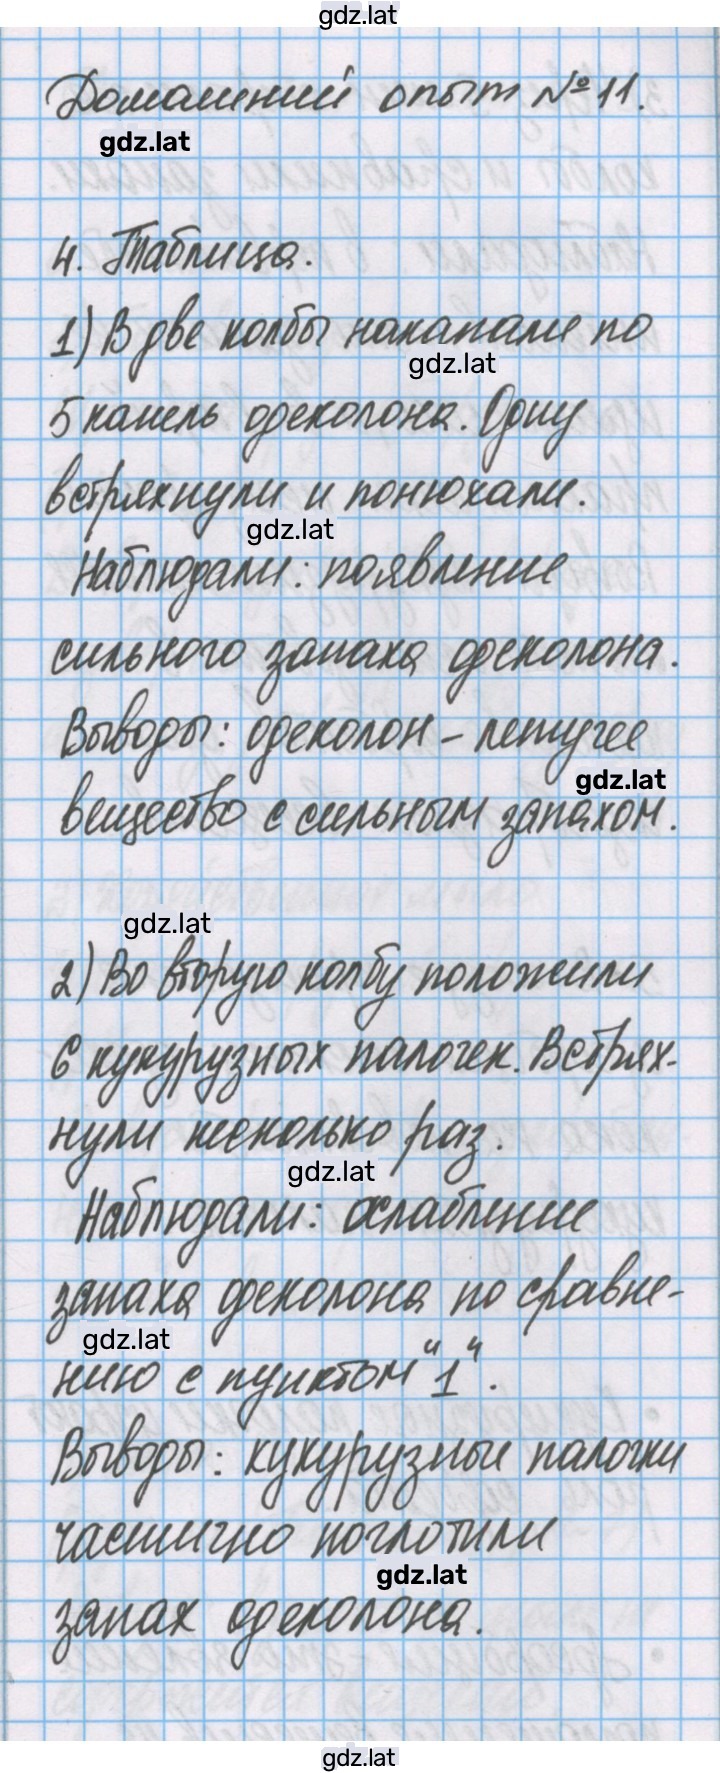 gdz.lat
Домашний опыт № 11.
gdz.lat
4. Таблица.
1) В две колбы накапали по
gdz.lat
5 капель одеколона. Одну
встряхнули и понюхали.
gdz.lat
Наблюдали: появление
сильного запаха одеколона.
Выводы: одеколон – летучее
gdz.lat
вещество с сильным запахом.
gdz.lat
2) Во вторую колбу положили
6 кукурузных палочек. Встрях-
нули несколько раз.
gdz.lat
Наблюдали: ослабление
запаха одеколона по сравне-
gdz.lat
нию с пунктом "1".
Выводы: кукурузные палочки
частично поглотили
gdz.lat
запах одеколона.
gdz.lat